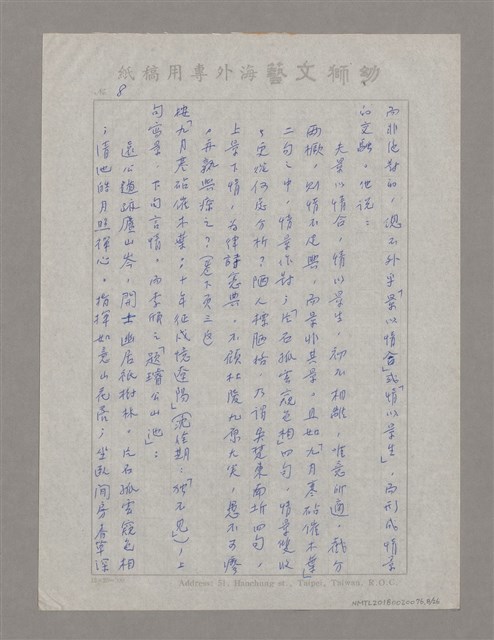 幼獅文藝海外專用稿紙
8
而非絕對的，總不外乎「景以情合」或「情以景生」，而形成情景
的交融，他說：
夫景以情合，情以景生，初不相離，唯意所適，截分
兩橛，則情不足興，而景非其景，且如「九月寒砧催木葉」
二句之中，情景作對；「片石孤雲窺色相」四句，情景雙收
，更從何處分析？陋人標陋格，乃謂「吳楚東南坼」四句，
上景下情，為律詩憲典，不顧杜陵九原大笑，愚不可瘳
，亦孰與療之？
按「九月寒砧催木葉，十年征戍憶遼陽」（沈佺期：「獨不見」），上
句寫景，下句言情，而李頎之「題璿公山池」：
遠公遁跡廬山岑，開士幽居祇樹林。片石孤雲窺色相
；清池皓月照禪心。指揮如意天花落；坐臥閒房春草深
Address: 51, Hanchung st., Taipei, Taiwan, R.O.C.
NMTL20180020076